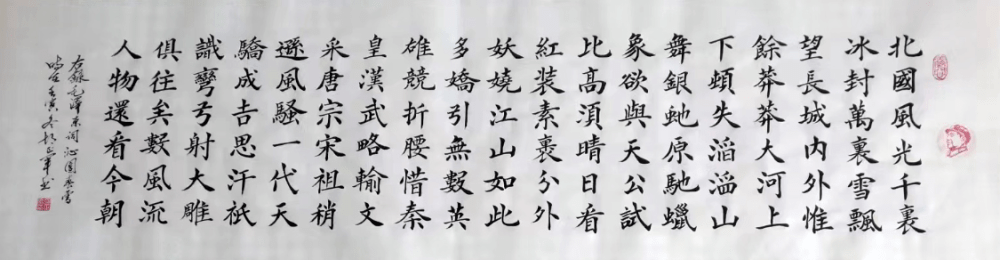 北國風光千裏
冰封萬裏雪飄
望長城內外惟
餘莽莽大河上
下頓失滔滔山
舞銀虵原馳蠟
象欲與天公試
比高湏晴日看
紅装素裹分外
妖嬈江山如此
多嬌引無數英
雄競折腰惜秦
皇漢武略輸文
采唐宗宋祖稍
遜風騷一代天
驕成吉思汗祇
識彎弓射大雕
俱往矣數風流
人物還看今朝
右錄毛澤东词沁園春雪
壬寅冬